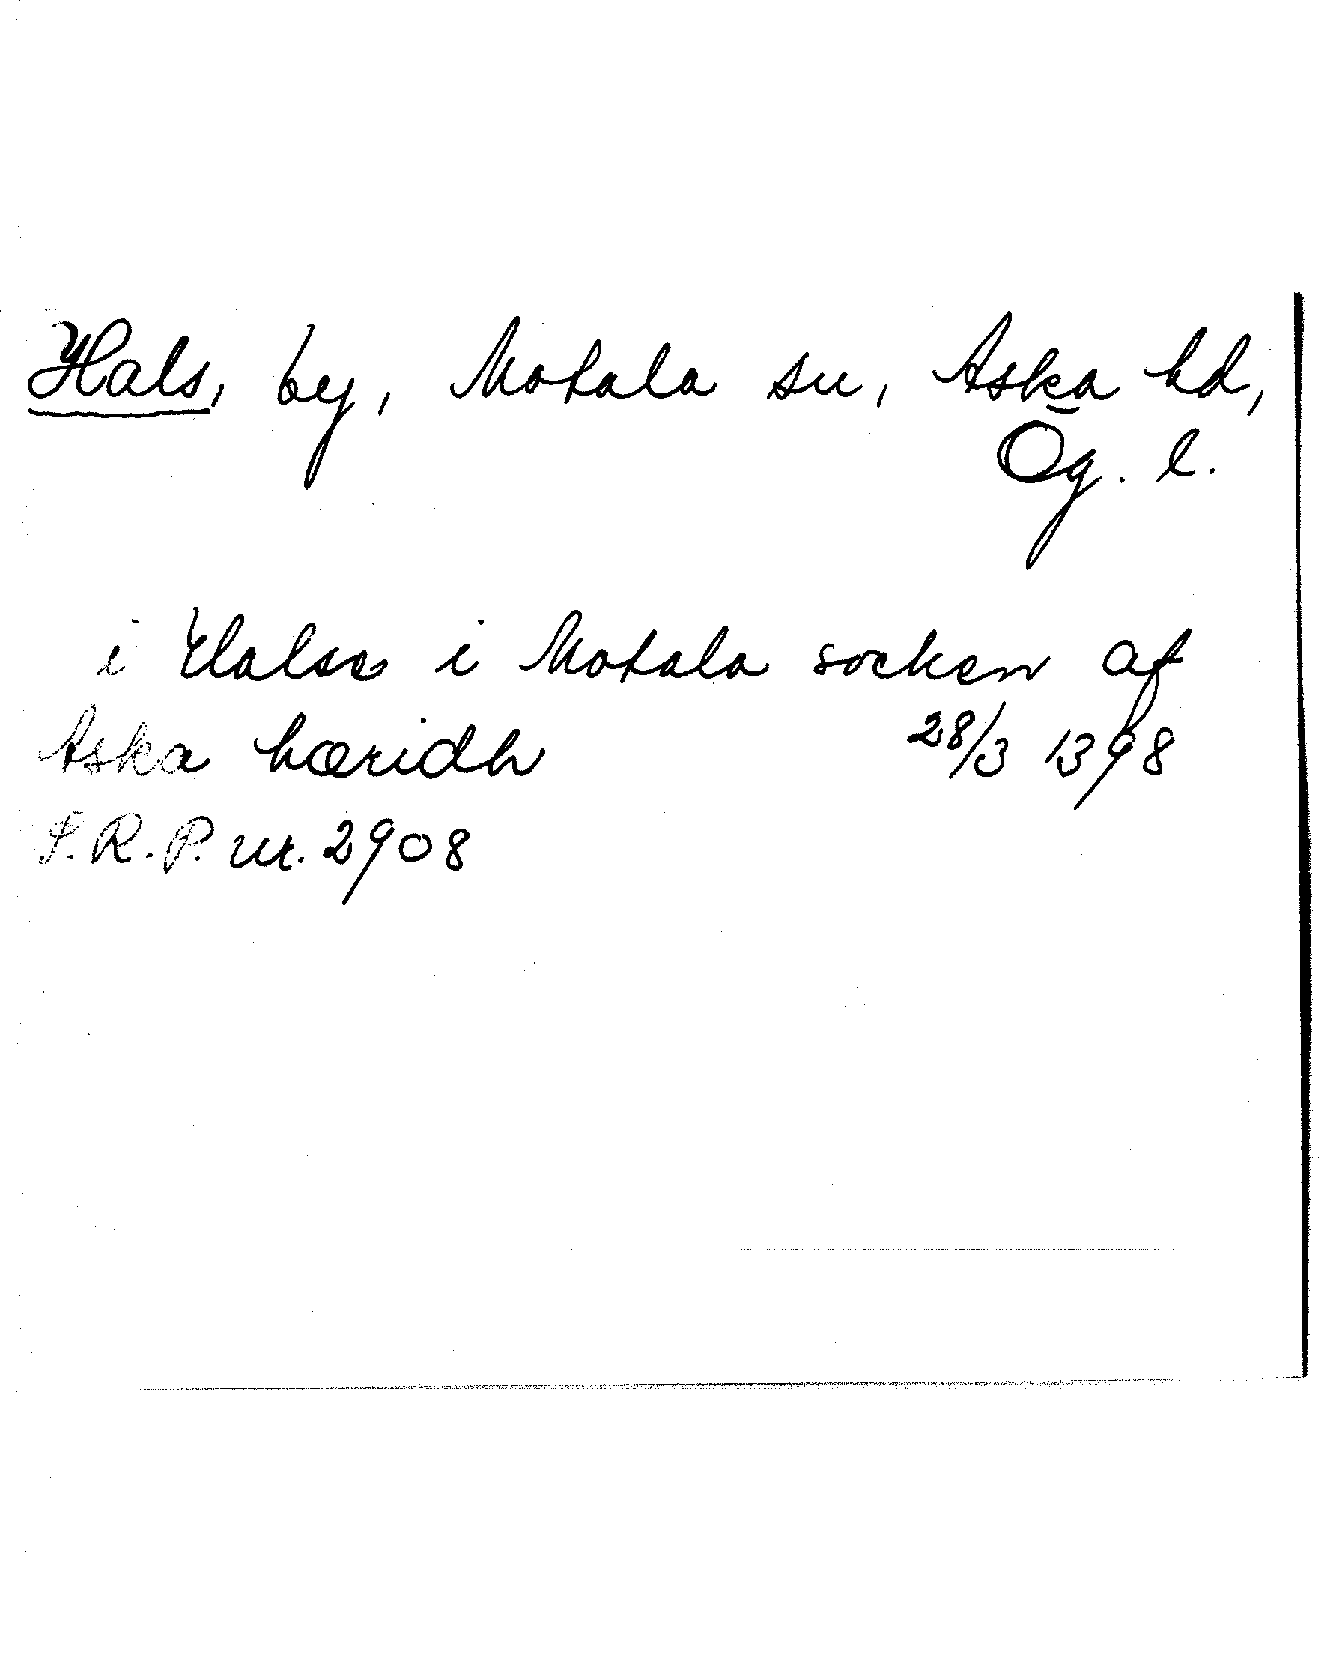 Hals, by, Motala sn, Aska hd,
Ög. l.
i Halse i Motala socken af
Aska hæridh 28/3 1398
S.R.P. nr. 2908